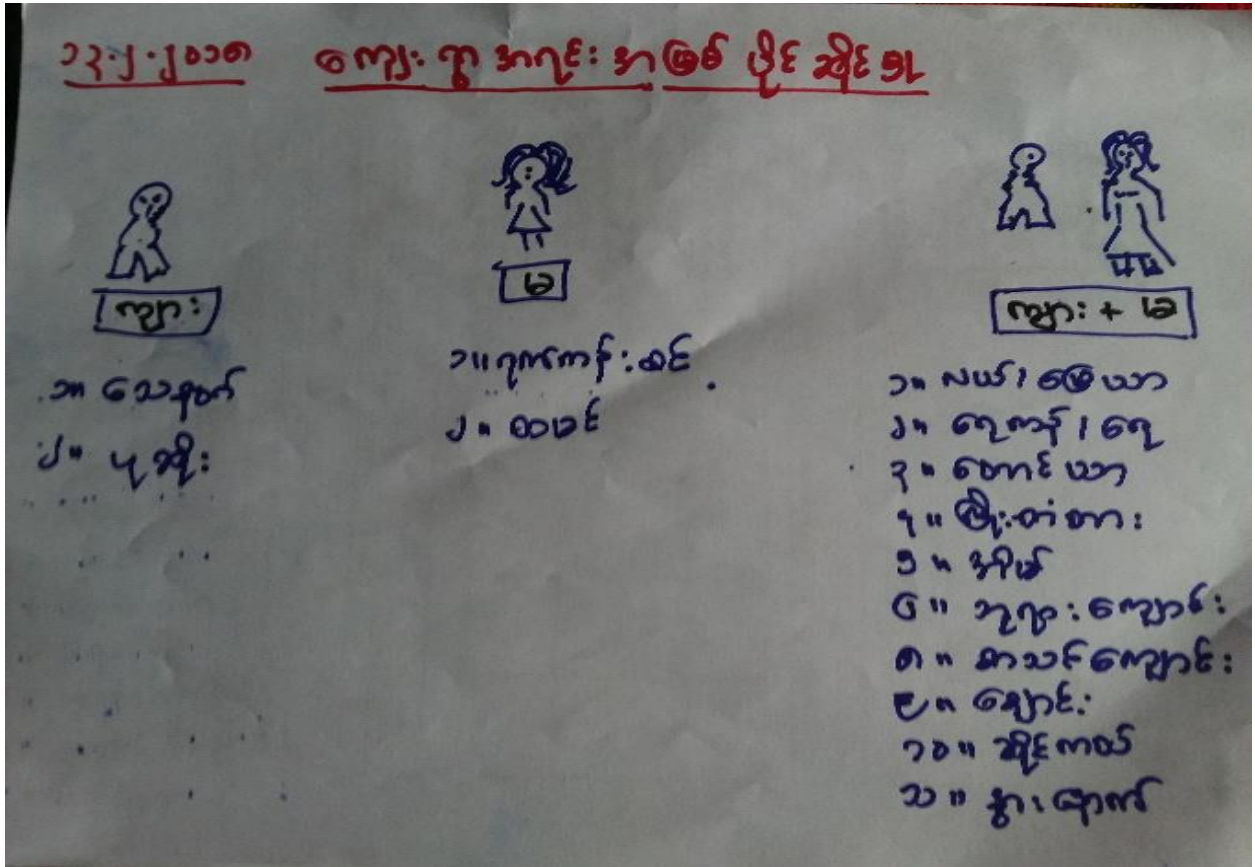 ၁၃.၂.၂၀၁၈ ကျေးရွာ အရင်းအမြစ် ပိုင်ဆိုင်မှု
ကျား
၁။ သေနတ်
၂။ ပုဆိုး
မ
၁။ ရက်ကန်းစင်
၂။ ထမင်
ကျား + မ
၁။ လယ်၊ မြေယာ
၂။ ရေကန်၊ ရေ
၃။ တောင်ယာ
၄။ မြို့တံတား
၅။ အိမ်
၆။ ဘုရားကျောင်း
၈။ စာသင်ကျောင်း
၉။ ချောင်း
၁၀။ ဆိုင်ကယ်
သ။ နွား၊ နောက်